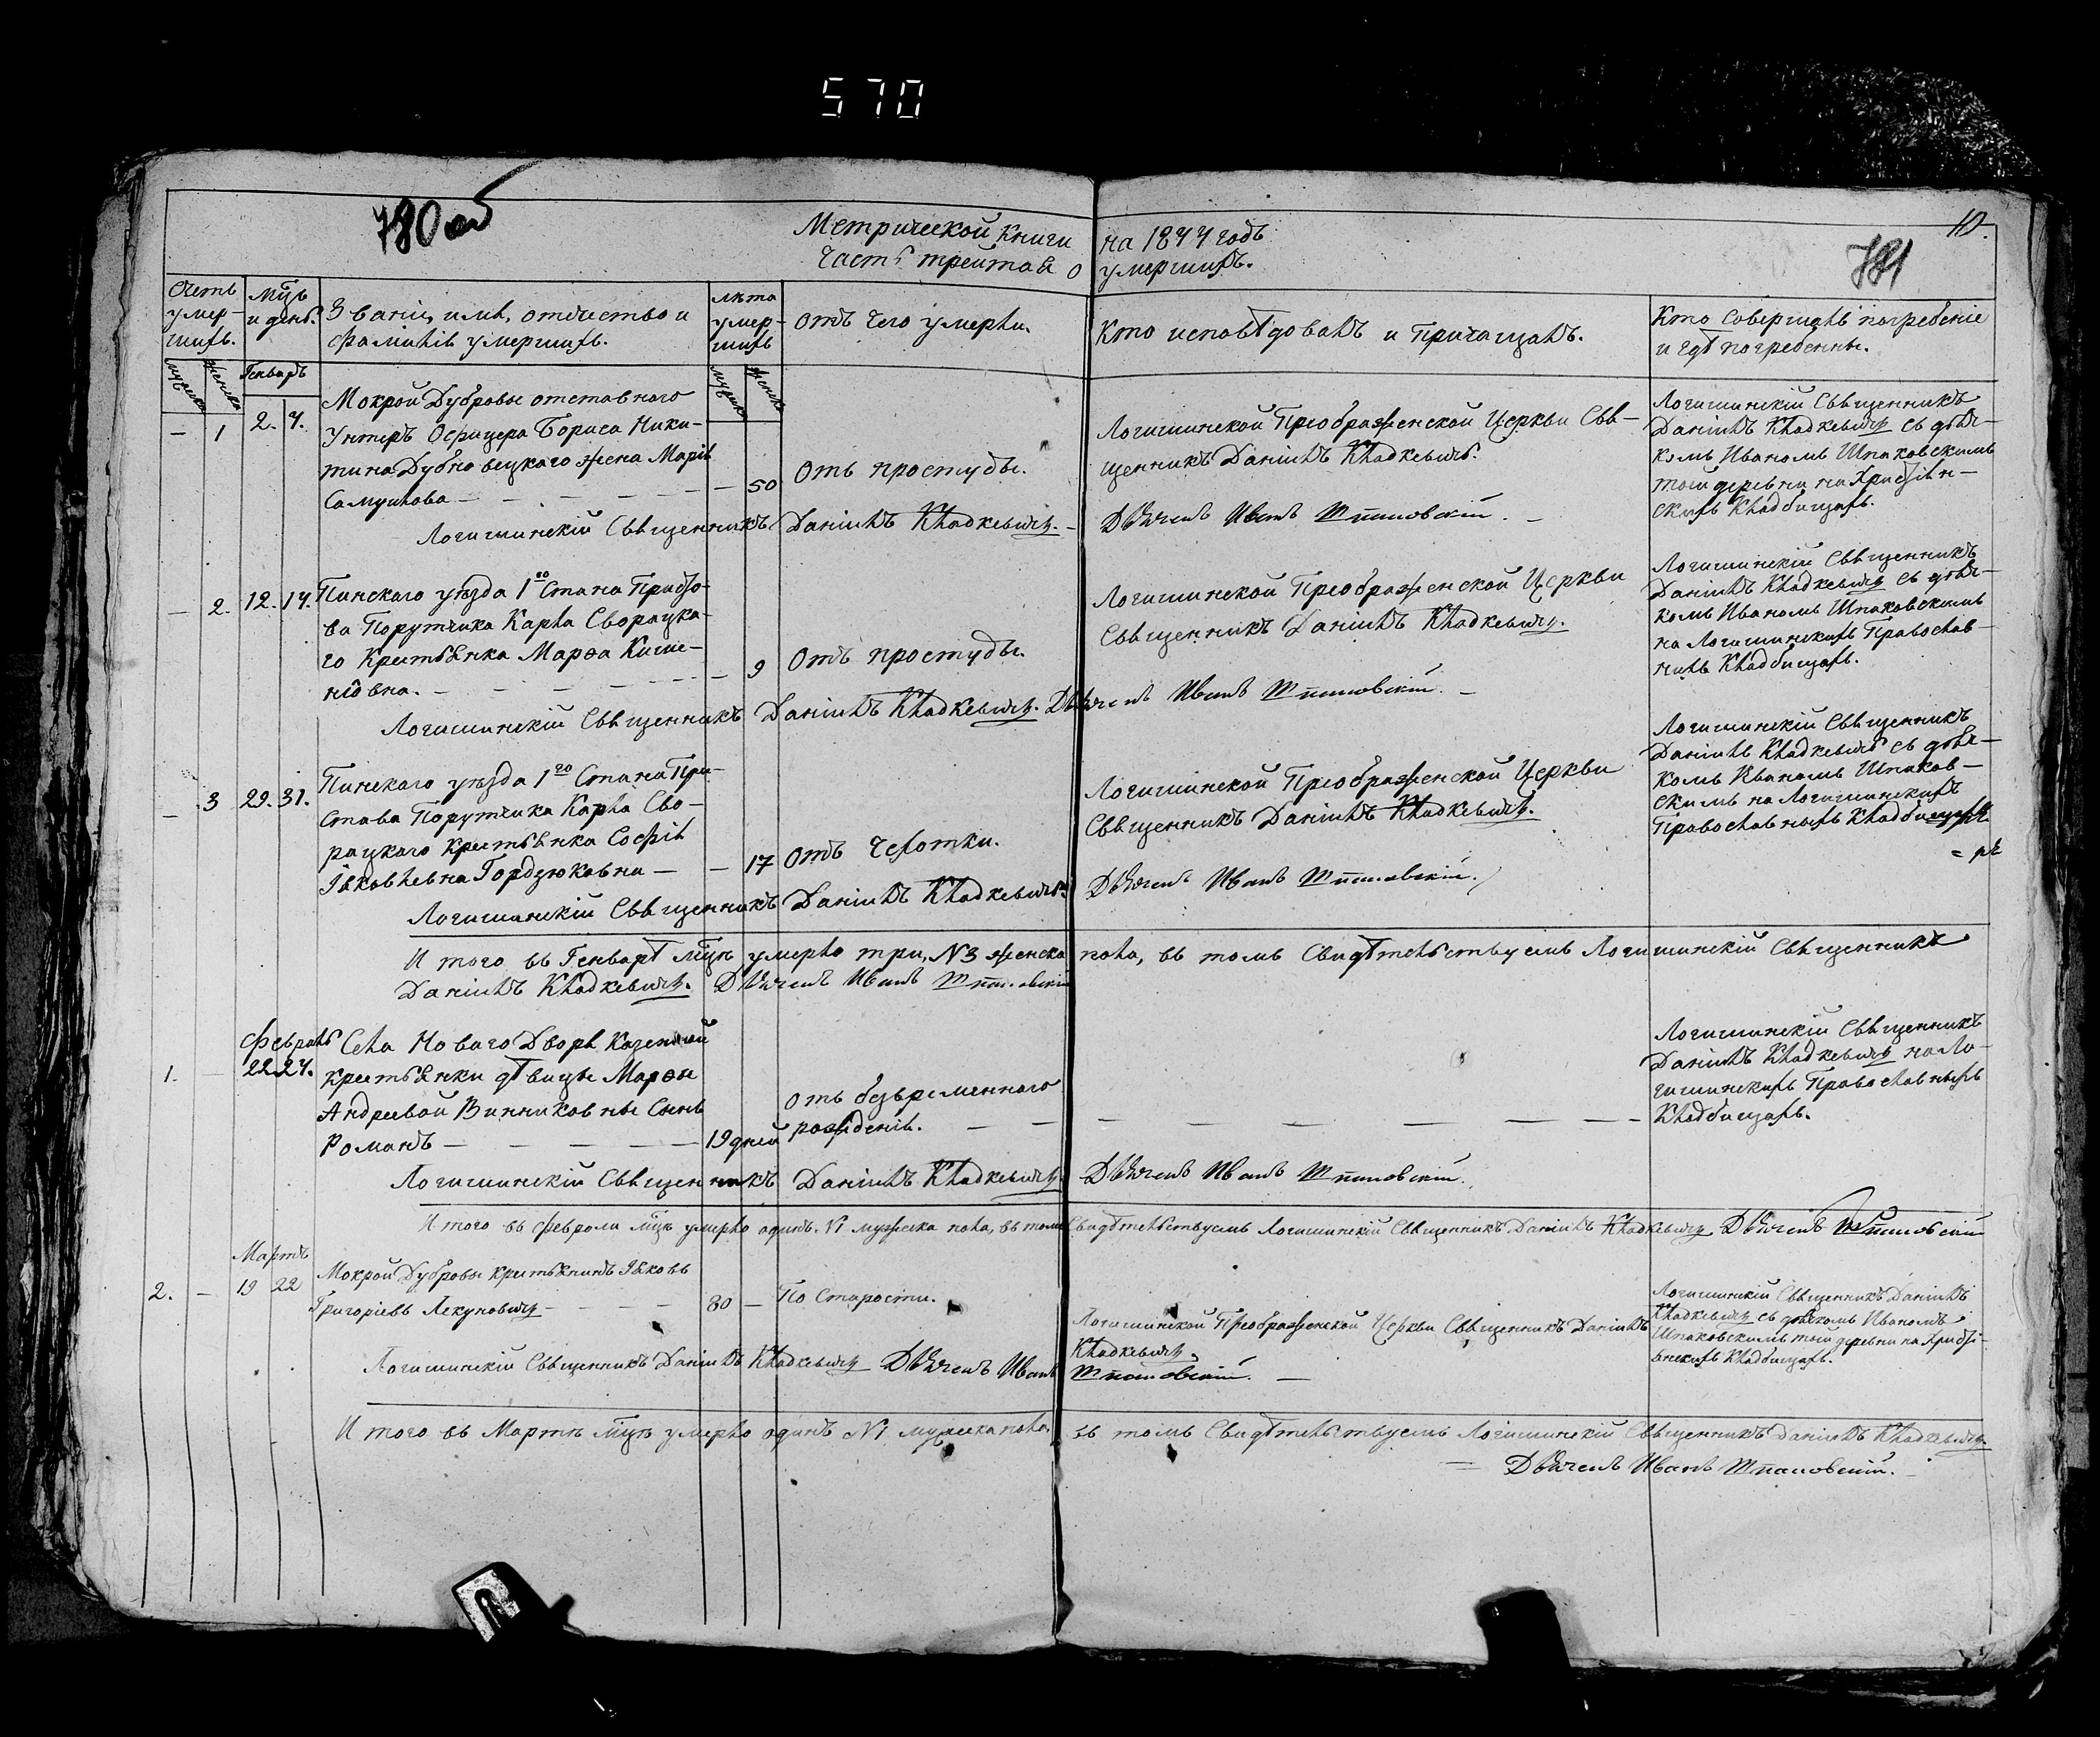 570
780 об
10.
781
Метрической Книги на 1844 годъ
Часть третїая о умершихъ.
Счетъ умер-
шихъ.
Мцъ
и день.
Званіе, имя, отчество и
фамилія умершихъ.
Лѣта
умер-
шихъ
Отъ чего умерли.
Кто исповѣдовалъ и Причащалъ.
Кто Совершалъ погребеніе
и гдѣ погребенны.
Мужеска
Женска
Генварь
Мужеска
Женска
— 1 2. 4.
Мокрой Дубровы отставного
Унтеръ Офицера Бориса Ники-
тина Дубновецкаго жена Марія
Самуилова — — — — — 50
Отъ простуды.
Логишинской Преображенской Церкви Свя-
щенникъ Даніилъ Кладкевичъ.
Логишинскій Священникъ
Даніилъ Кладкевичъ съ дьяч-
комъ Иваномъ Шпаковскимъ
той деревни на Христіян-
скихъ Кладбищахъ.
Логишинскій Священникъ Даніилъ Кладкевичъ. — Дьячекъ Иванъ Шпаковскій. —
— 2. 12. 14.
Пинскаго уѣзда 1го Стана Приста-
ва Поручика Карла Сворацка-
го Крестьянка Марѳа
— — — — — 9
Отъ простуды.
Логишинской Преображенской Церкви
Священникъ Даніилъ Кладкевичъ.
Логишинскій Священникъ
Даніилъ Кладкевичъ съ дьяч-
комъ Иваномъ Шпаковскимъ
на Логишинскихъ Православ-
ныхъ Кладбищахъ.
Логишинскій Священникъ Даніилъ Кладкевичъ. Дьячекъ Иванъ Шпаковскій. —
— 3 29. 31.
Пинскаго уѣзда 1го Стана При-
става Поручика Карла Сво-
рацкаго крестьянка Софія
Яковлевна Гордзюковна — — 17
Отъ Чахотки.
Логишинской Преображенской Церкви
Священникъ Даніилъ Кладкевичъ.
Логишинскій Священникъ
Даніилъ Кладкевичъ съ дьяч-
комъ Иваномъ Шпаков-
скимъ на Логишинскихъ
Православныхъ Кладбищахъ
Логишинскій Священникъ Даніилъ Кладкевичъ. Дьячекъ Иванъ Шпаковскій.
И того въ Генварѣ мцѣ умерло три, N3 женска пола, въ томъ Свидѣтельствуемъ Логишинскій Священникъ
Даніилъ Кладкевичъ. Дьячекъ Иванъ Шпаковскій
Февраль
1. — 22. 24.
Села Новаго Двора Казенной
крестьянки дѣвицы Марѳы
Андреевой Винниковны Сынъ
Романъ — — — — 19 дней
Отъ безвременнаго
рожденія. — — — — — — — —
Логишинскій Священникъ
Даніилъ Кладкевичъ на Ло-
гишинскихъ Православныхъ
Кладбищахъ.
Логишинскій Священникъ Даніилъ Кладкевичъ Дьячекъ Иванъ Шпаковскій.
И того въ Феврали мцѣ умерло одинъ. N1 мужеска пола, въ томъ Свидѣтельствуемъ Логишинскій Священникъ Даніилъ Кладкевичъ Дьячекъ Шпаковскій
Мартъ
2. — 19 22
Мокрой Дубровы крестьянинъ Яковъ
Григоріевъ Лекуновичъ — — — — 80 —
По Старости.
Логишинской Преображенской Церкви Священникъ Даніилъ
Кладкевичъ.
Логишинскій Священникъ Даніилъ
Кладкевичъ съ дьячкомъ Иваномъ
Шпаковскимъ той деревни на Христі-
янскихъ Кладбищахъ.
Логишинскій Священникъ Даніилъ Кладкевичъ Дьячекъ Иванъ Шпаковскій. —
И того въ Мартѣ мцѣ умерло одинъ N1 мужеска пола, въ томъ Свидѣтельствуемъ Логишинскій Священникъ Даніилъ Кладкевичъ.
Дьячекъ Иванъ Шпаковскій. —